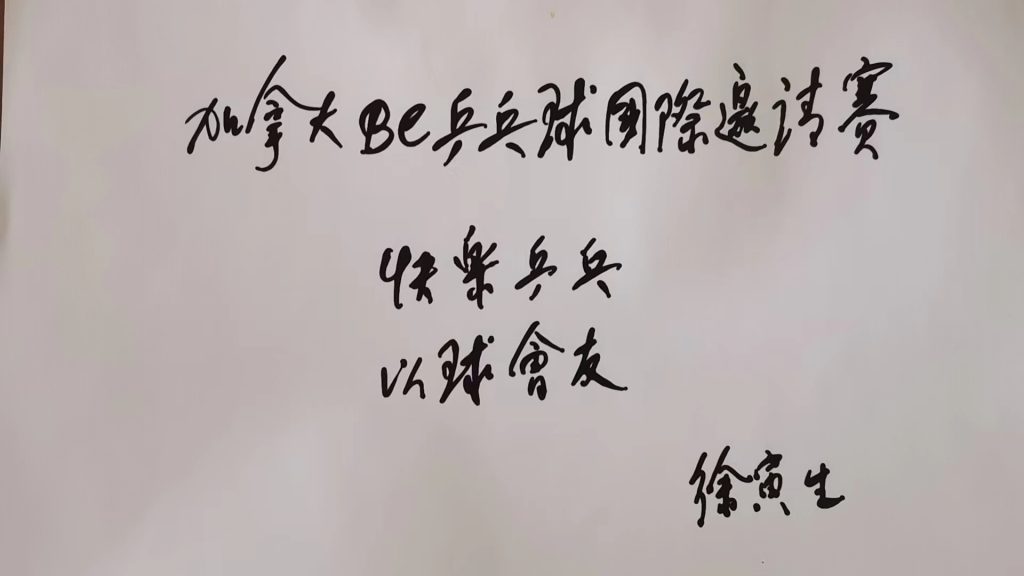 加拿大BC乒乓球國際邀请賽
快樂乒乓
以球會友
徐寅生